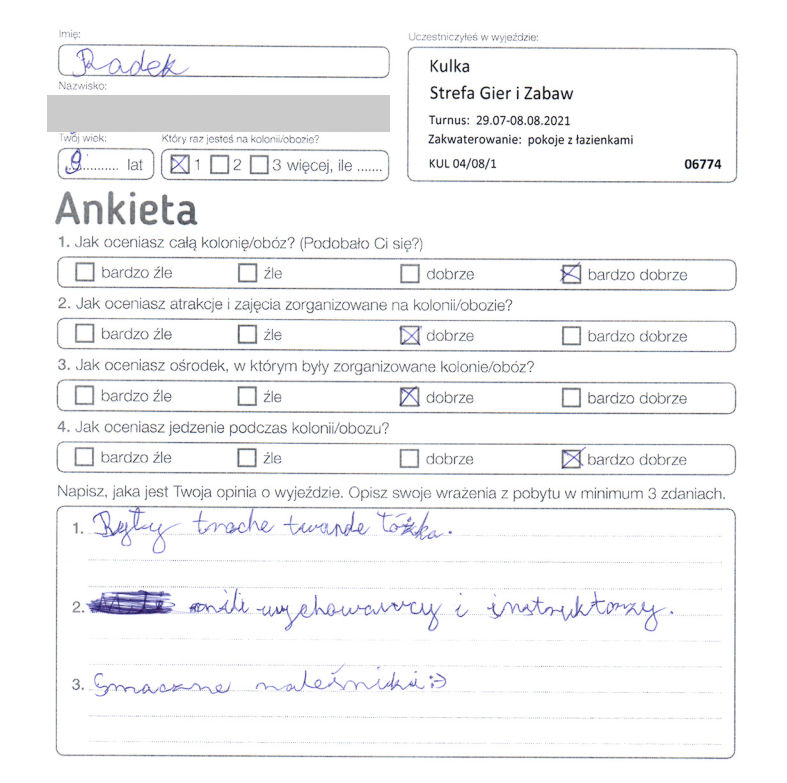 Imię:
Radek
Nazwisko:
Twój wiek:
Który raz jesteś na kolonii/obozie?
9 lat
1 2 3 więcej, ile .......
Uczestniczyłeś w wyjeździe:
Kulka
Strefa Gier i Zabaw
Turnus: 29.07-08.08.2021
Zakwaterowanie: pokoje z łazienkami
KUL 04/08/1 06774
Ankieta
1. Jak oceniasz całą kolonię/obóz? (Podobało Ci się?)
bardzo źle źle dobrze bardzo dobrze
2. Jak oceniasz atrakcje i zajęcia zorganizowane na kolonii/obozie?
bardzo źle źle dobrze bardzo dobrze
3. Jak oceniasz ośrodek, w którym były zorganizowane kolonie/obóz?
bardzo źle źle dobrze bardzo dobrze
4. Jak oceniasz jedzenie podczas kolonii/obozu?
bardzo źle źle dobrze bardzo dobrze
Napisz, jaka jest Twoja opinia o wyjeździe. Opisz swoje wrażenia z pobytu w minimum 3 zdaniach.
1. Były troche twarde łóżka.
2. mili wychowawcy i instruktorzy.
3. Smaczne naleśniki :-)